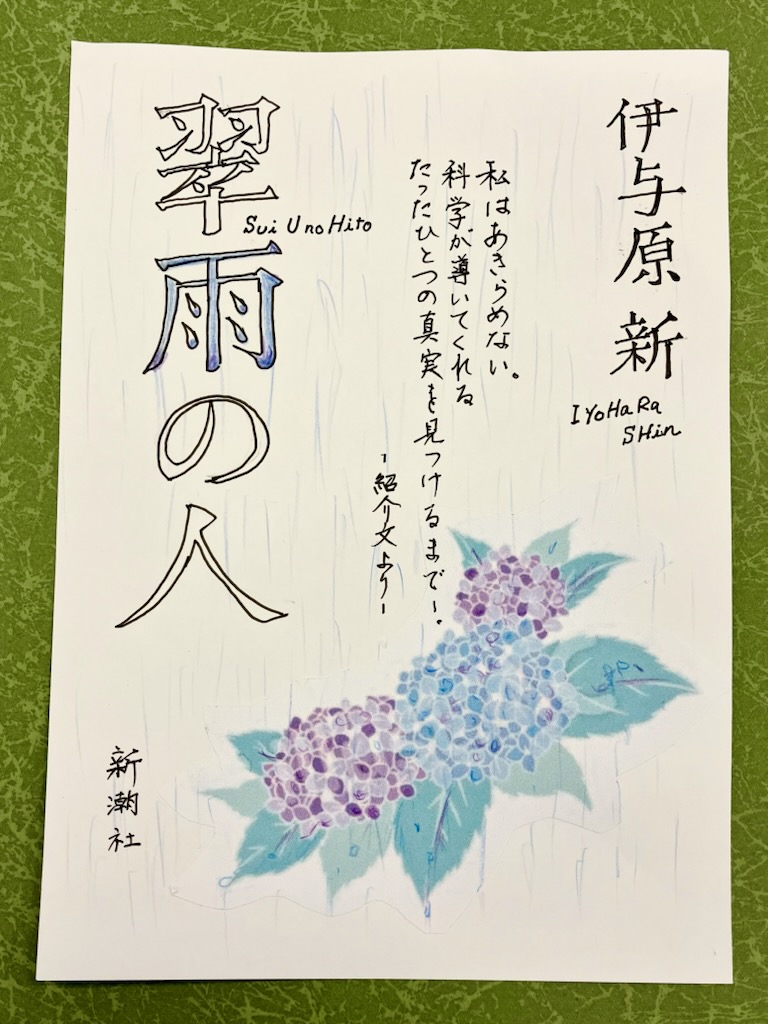 伊与原 新
IYoHaRa
SHin
私はあきらめない。
科学が導いてくれる
たったひとつの真実を見つけるまで─。
─紹介文より─
翠雨の人
Sui U no Hito
新潮社